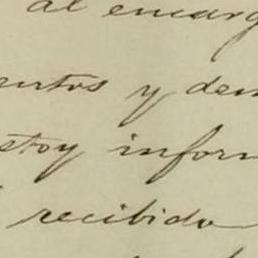 al encarg
entos y dem
estoy inform
recibido